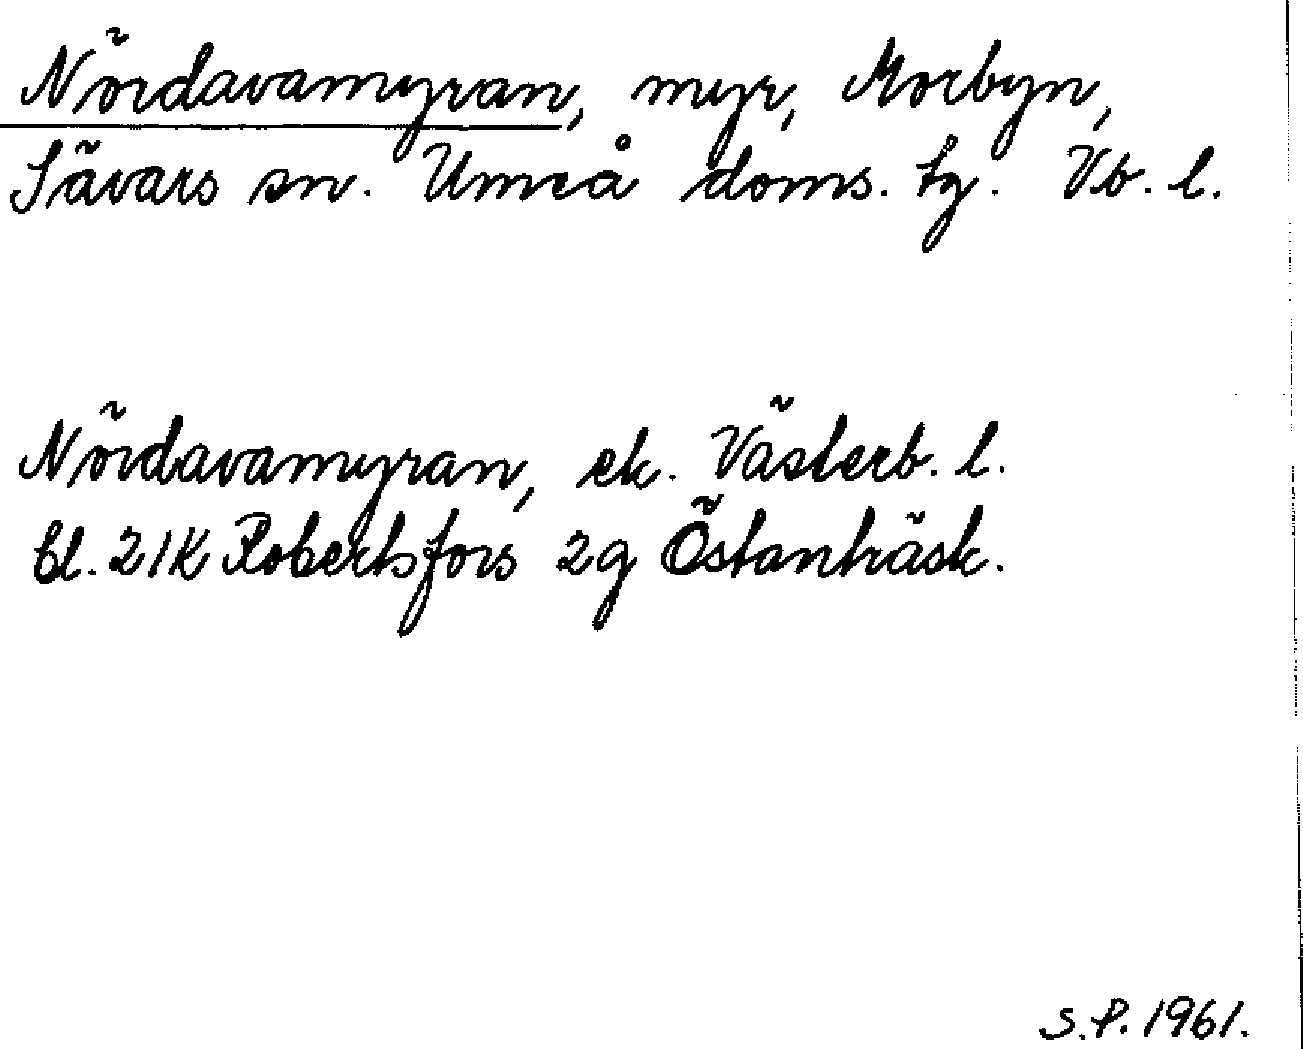 Nördavamyran, myr, Morbyn,
Sävars sn. Umeå doms. tg. Vb. l.
Nördavamyran, ek. Västerb. l.
bl. 21K Robertsfors 2g Östanträsk.
S.P. 1961.